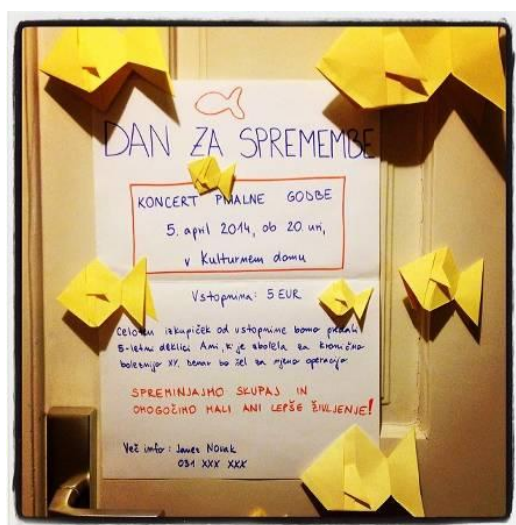 DAN ZA SPREMEMBE
KONCERT GODBE
5. april 2014, ob 20. uri,
v Kulturnem domu
Vstopnina: 5 EUR
Celoten izkupiček od vstopnine bomo predali
5-letni deklici Ani, ki je zbolela za kronično
boleznijo XY. Denar bo šel za njeno operacijo
SPREMINJAJMO SKUPAJ IN
OMOGOČIMO MALI ANI LEPŠE ŽIVLJENJE!
Več info: Janez Novak
031 XXX XXX